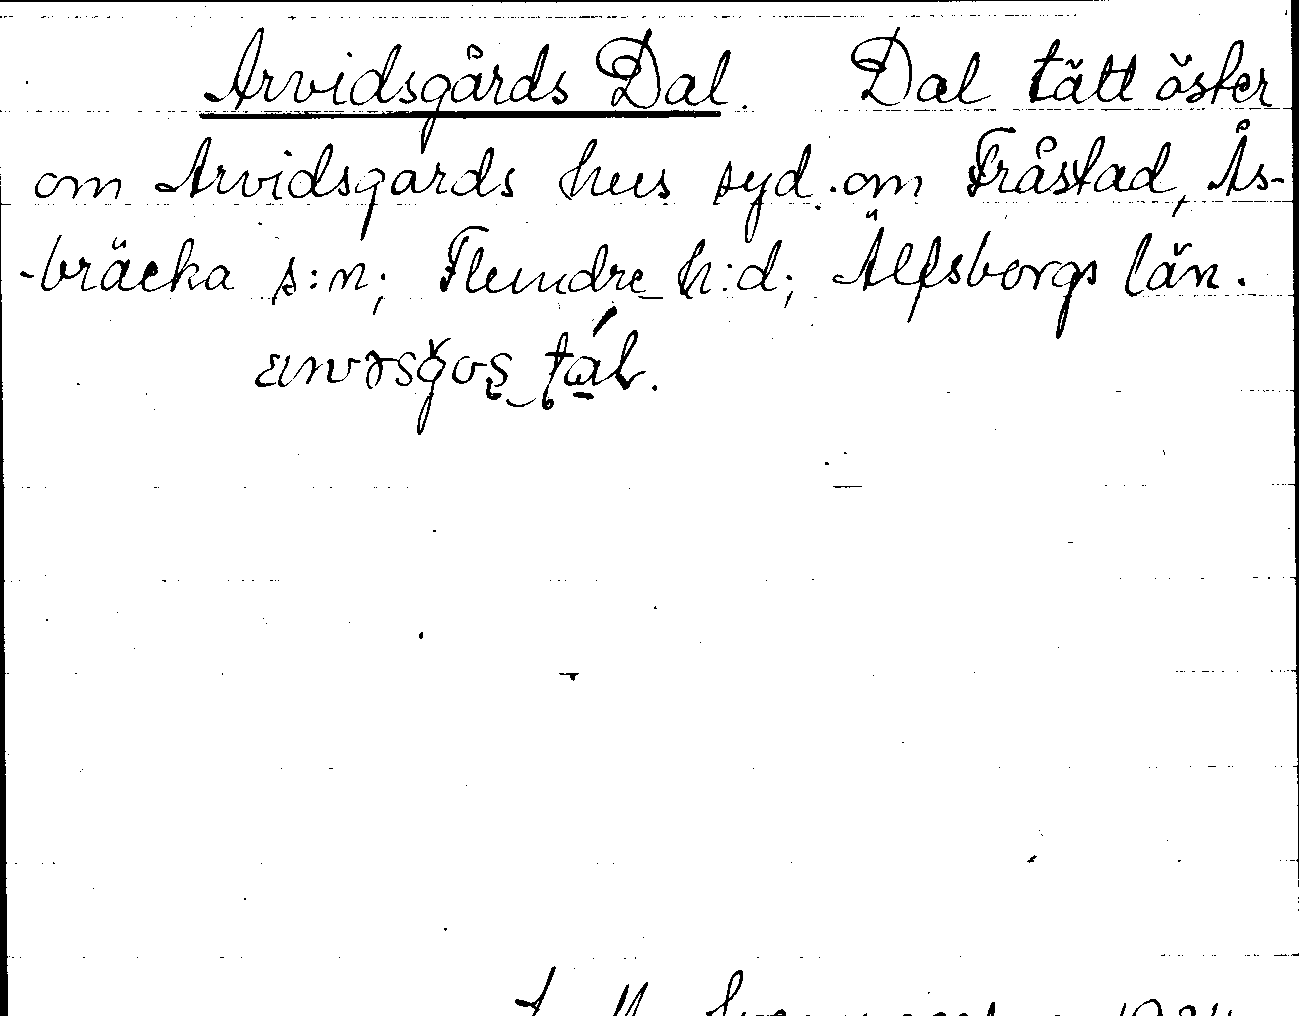 Arvidsgårds Dal. Dal tätt öster
om Arvidsgards hus syd. om Fråstad, Ås-
-bräcka s:n; Flundre h:d; Älfsborgs län.